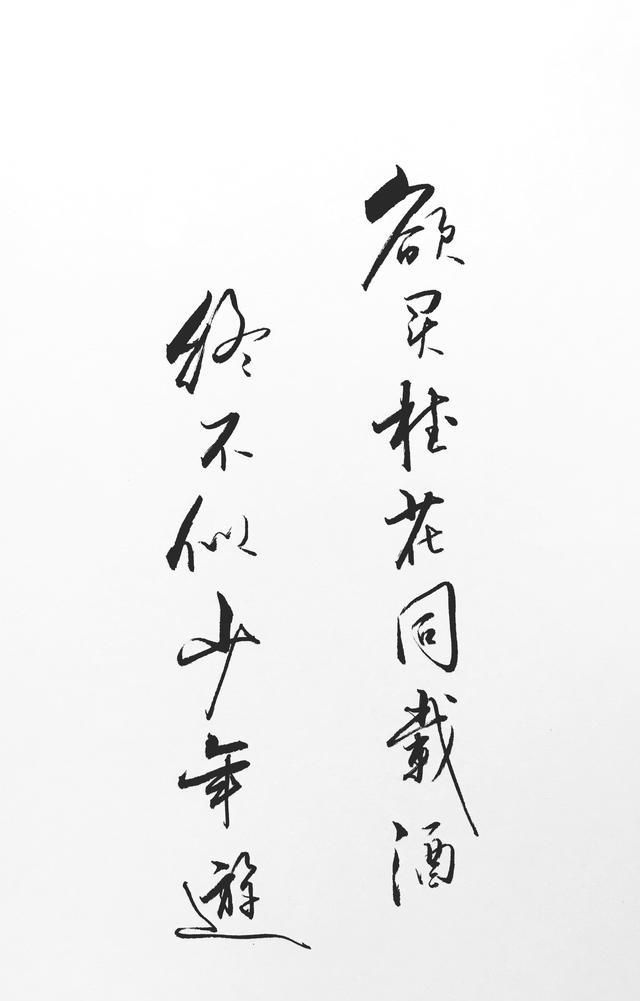 欲买桂花同載酒
终不似少年遊